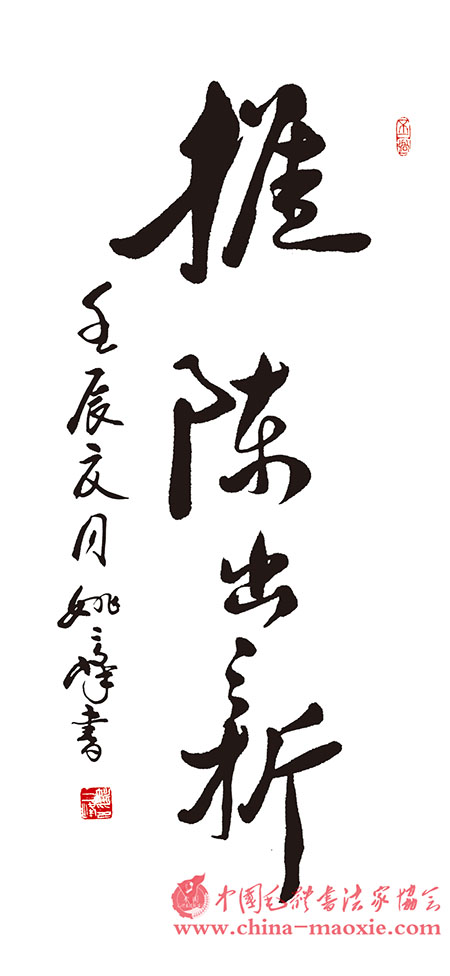 推陈出新
壬辰夏月姚三峰书
中国毛体书法家协会
www.china-maoxie.com